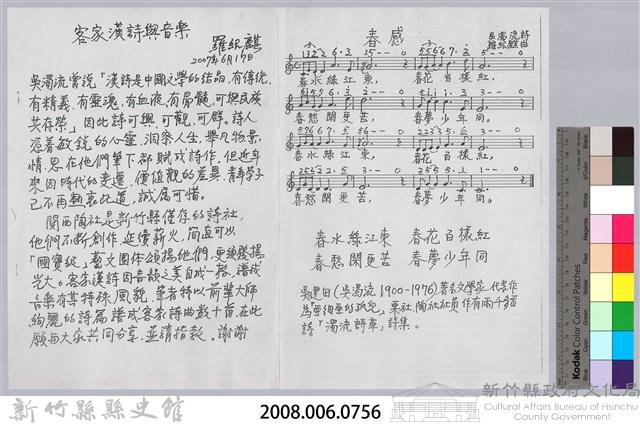 客家漢詩與音樂
羅紹麒
2007年6月17日
吳濁流嘗說「漢詩是中國文學的結晶,有傳統,
有精義,有靈魂,有血液,有骨髓,可與民族
共存榮」因此詩可興,可觀,可群。詩人
憑着敏銳的心靈,洞察人生,舉凡物景,
情、思在他們筆下都賦成詩作。但近年
來因時代的變遷,價值觀的差異,青年學子
已不再熱衷此道,誠屬可惜。
關西陶社是新竹縣僅存的詩社,
他們不斷創作,延續薪火,簡直可以
「國寶級」藝文團体頒揚他們,更須發揚
光大。客家漢詩因音韻之美自成一格,譜成
音樂有其特殊風貌,筆者特以前輩大師
絢麗的詩篇譜成客家詩曲數十首,在此
願與大家共同分享,並請指教。謝謝
春感
吳濁流詩
羅紹麒曲
春水綠江東, 春花百樣紅,
春愁閑更苦, 春夢少年同。
春水綠江東, 春花百樣紅,
春愁閑更苦, 春夢少年同。
春水綠江東 春花百樣紅
春愁閑更苦 春夢少年同
吳建田(吳濁流1900-1976)著名文學家,代表作
為「亞細亞的孤兒」,栗社,陶社社員,作有兩千多首
詩「濁流詩草」詩集。
新竹縣縣史館
2008.006.0756
新竹縣政府文化局
Cultural Affairs Bureau of Hsinchu
County Government
Kodak Color Control Patches
Blue
Cyan
Green
Yellow
Red
Magenta
White
3/Color
Black